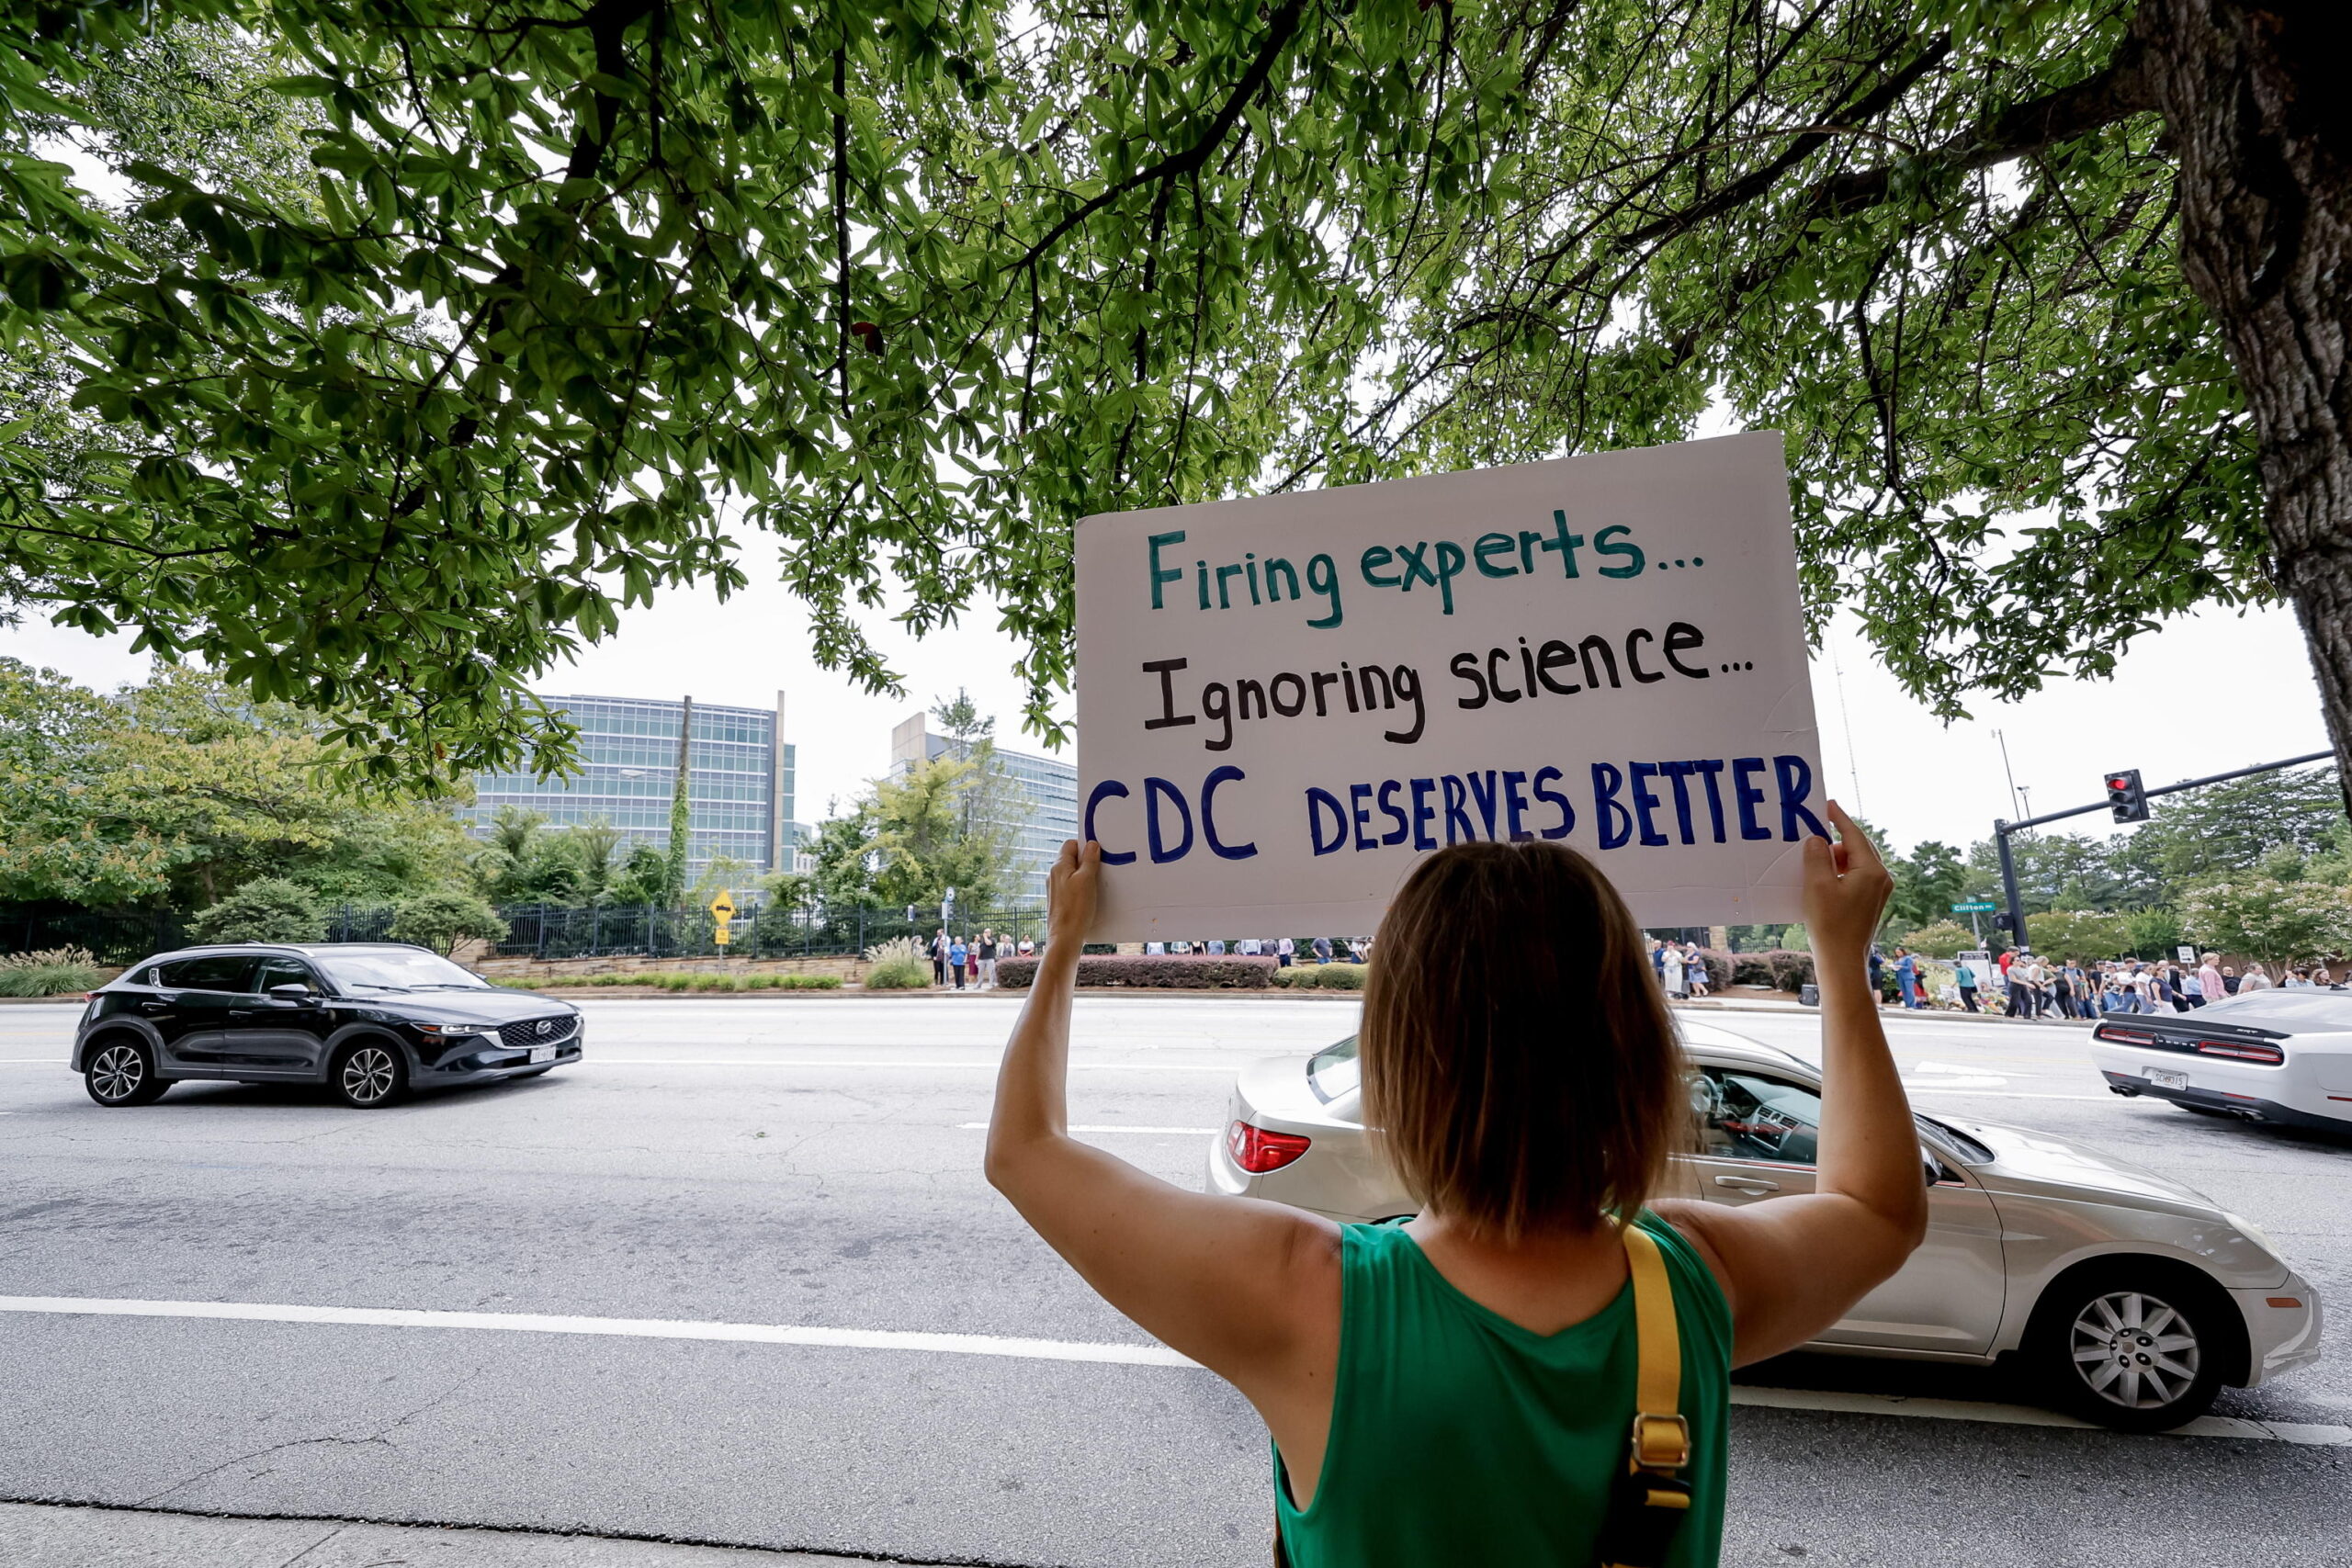 Firing experts...
Ignoring science...
CDC DESERVES BETTER
Clifton